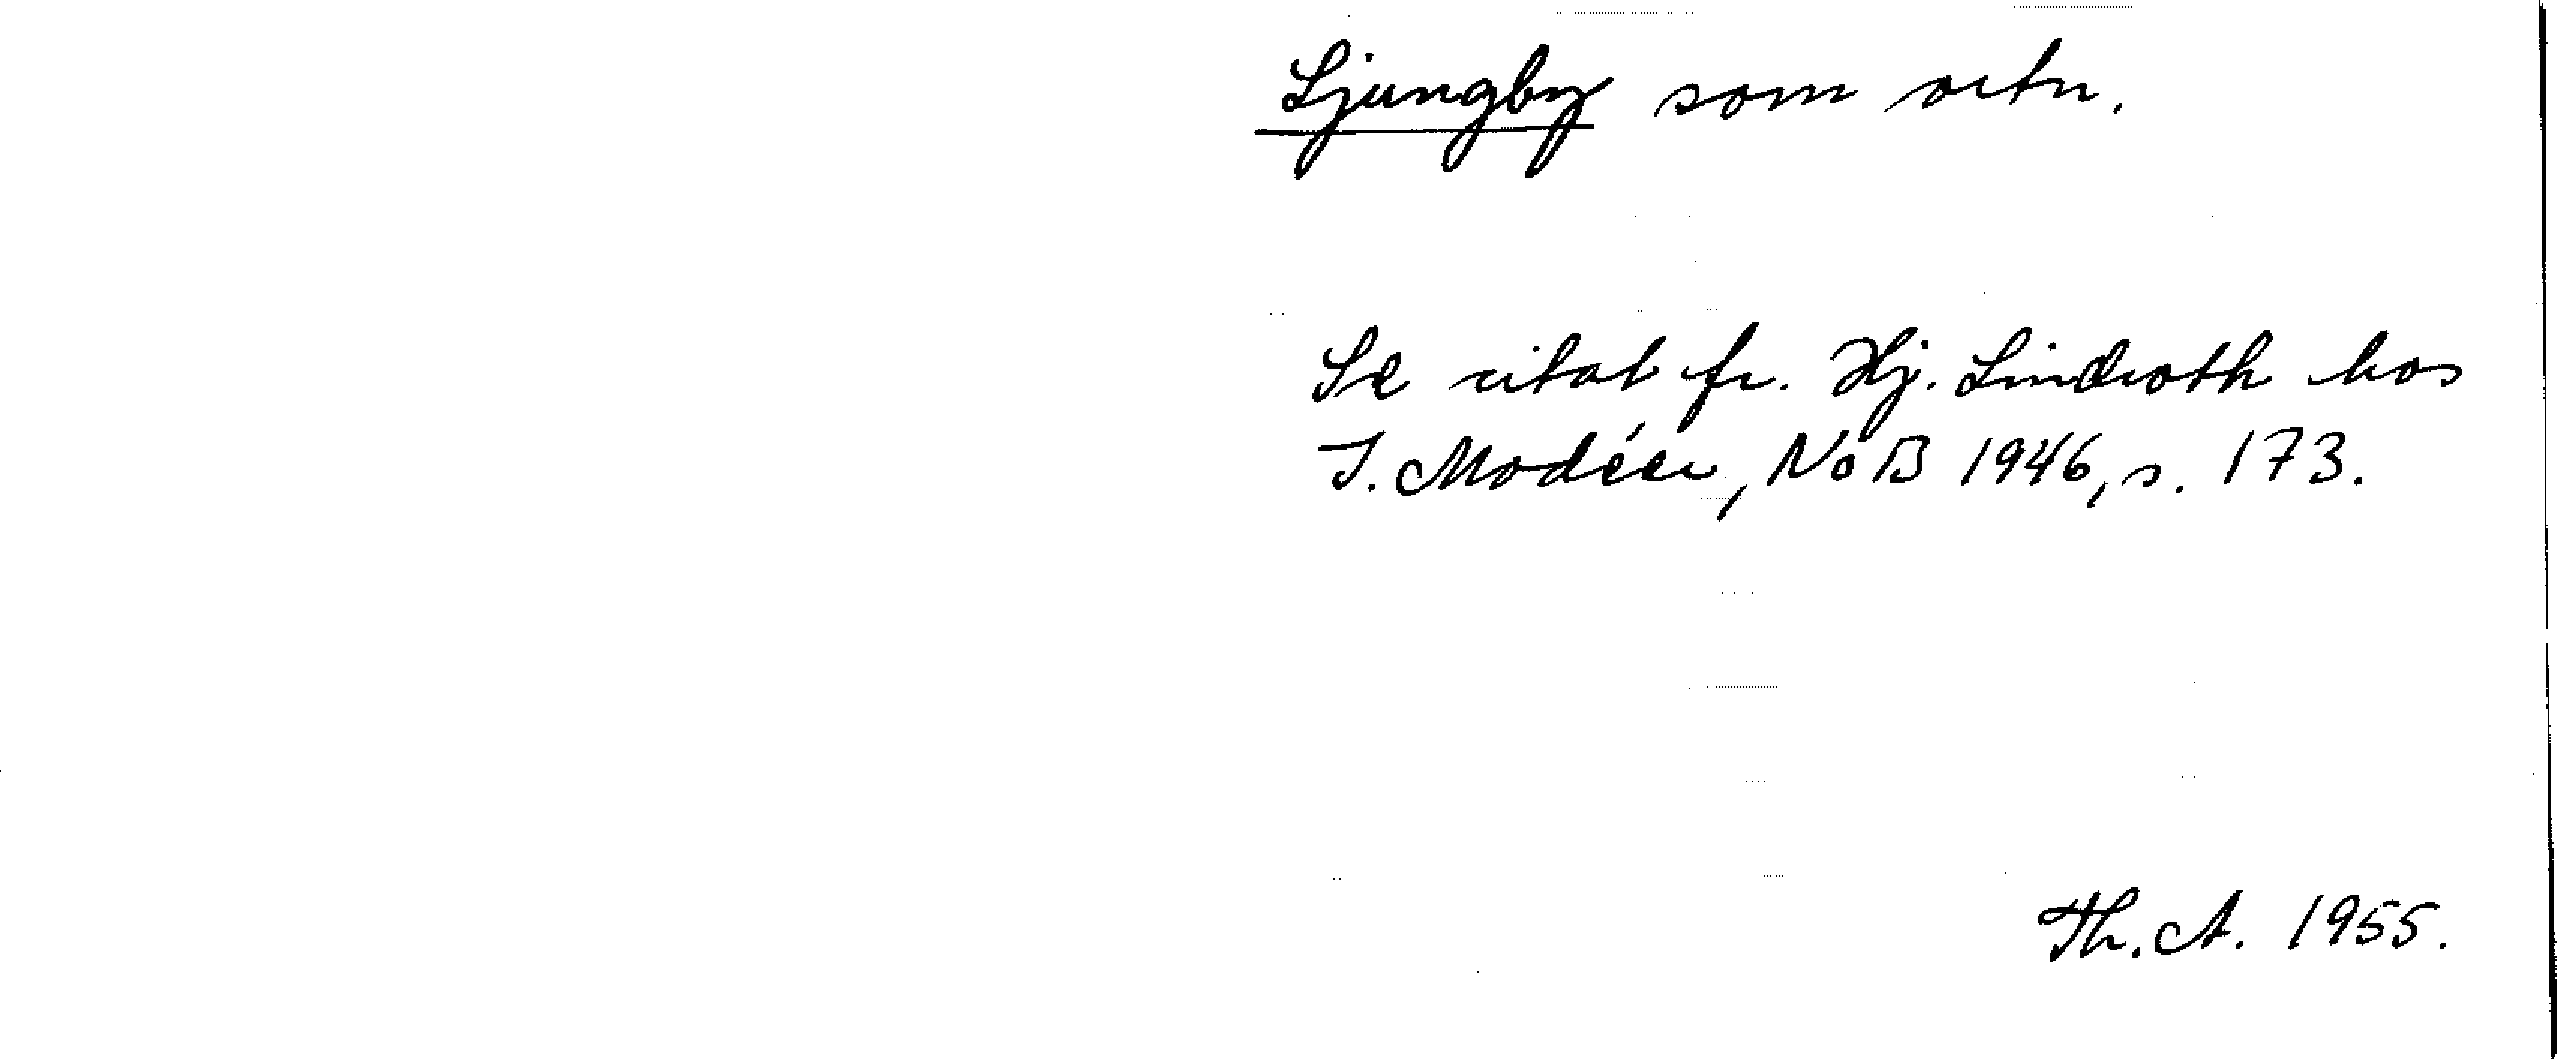 Ljungby som ortn.
Se citat fr. Hj. Lindroth hos
I. Modéer, NoB 1946, s. 173.
Th. A. 1955.